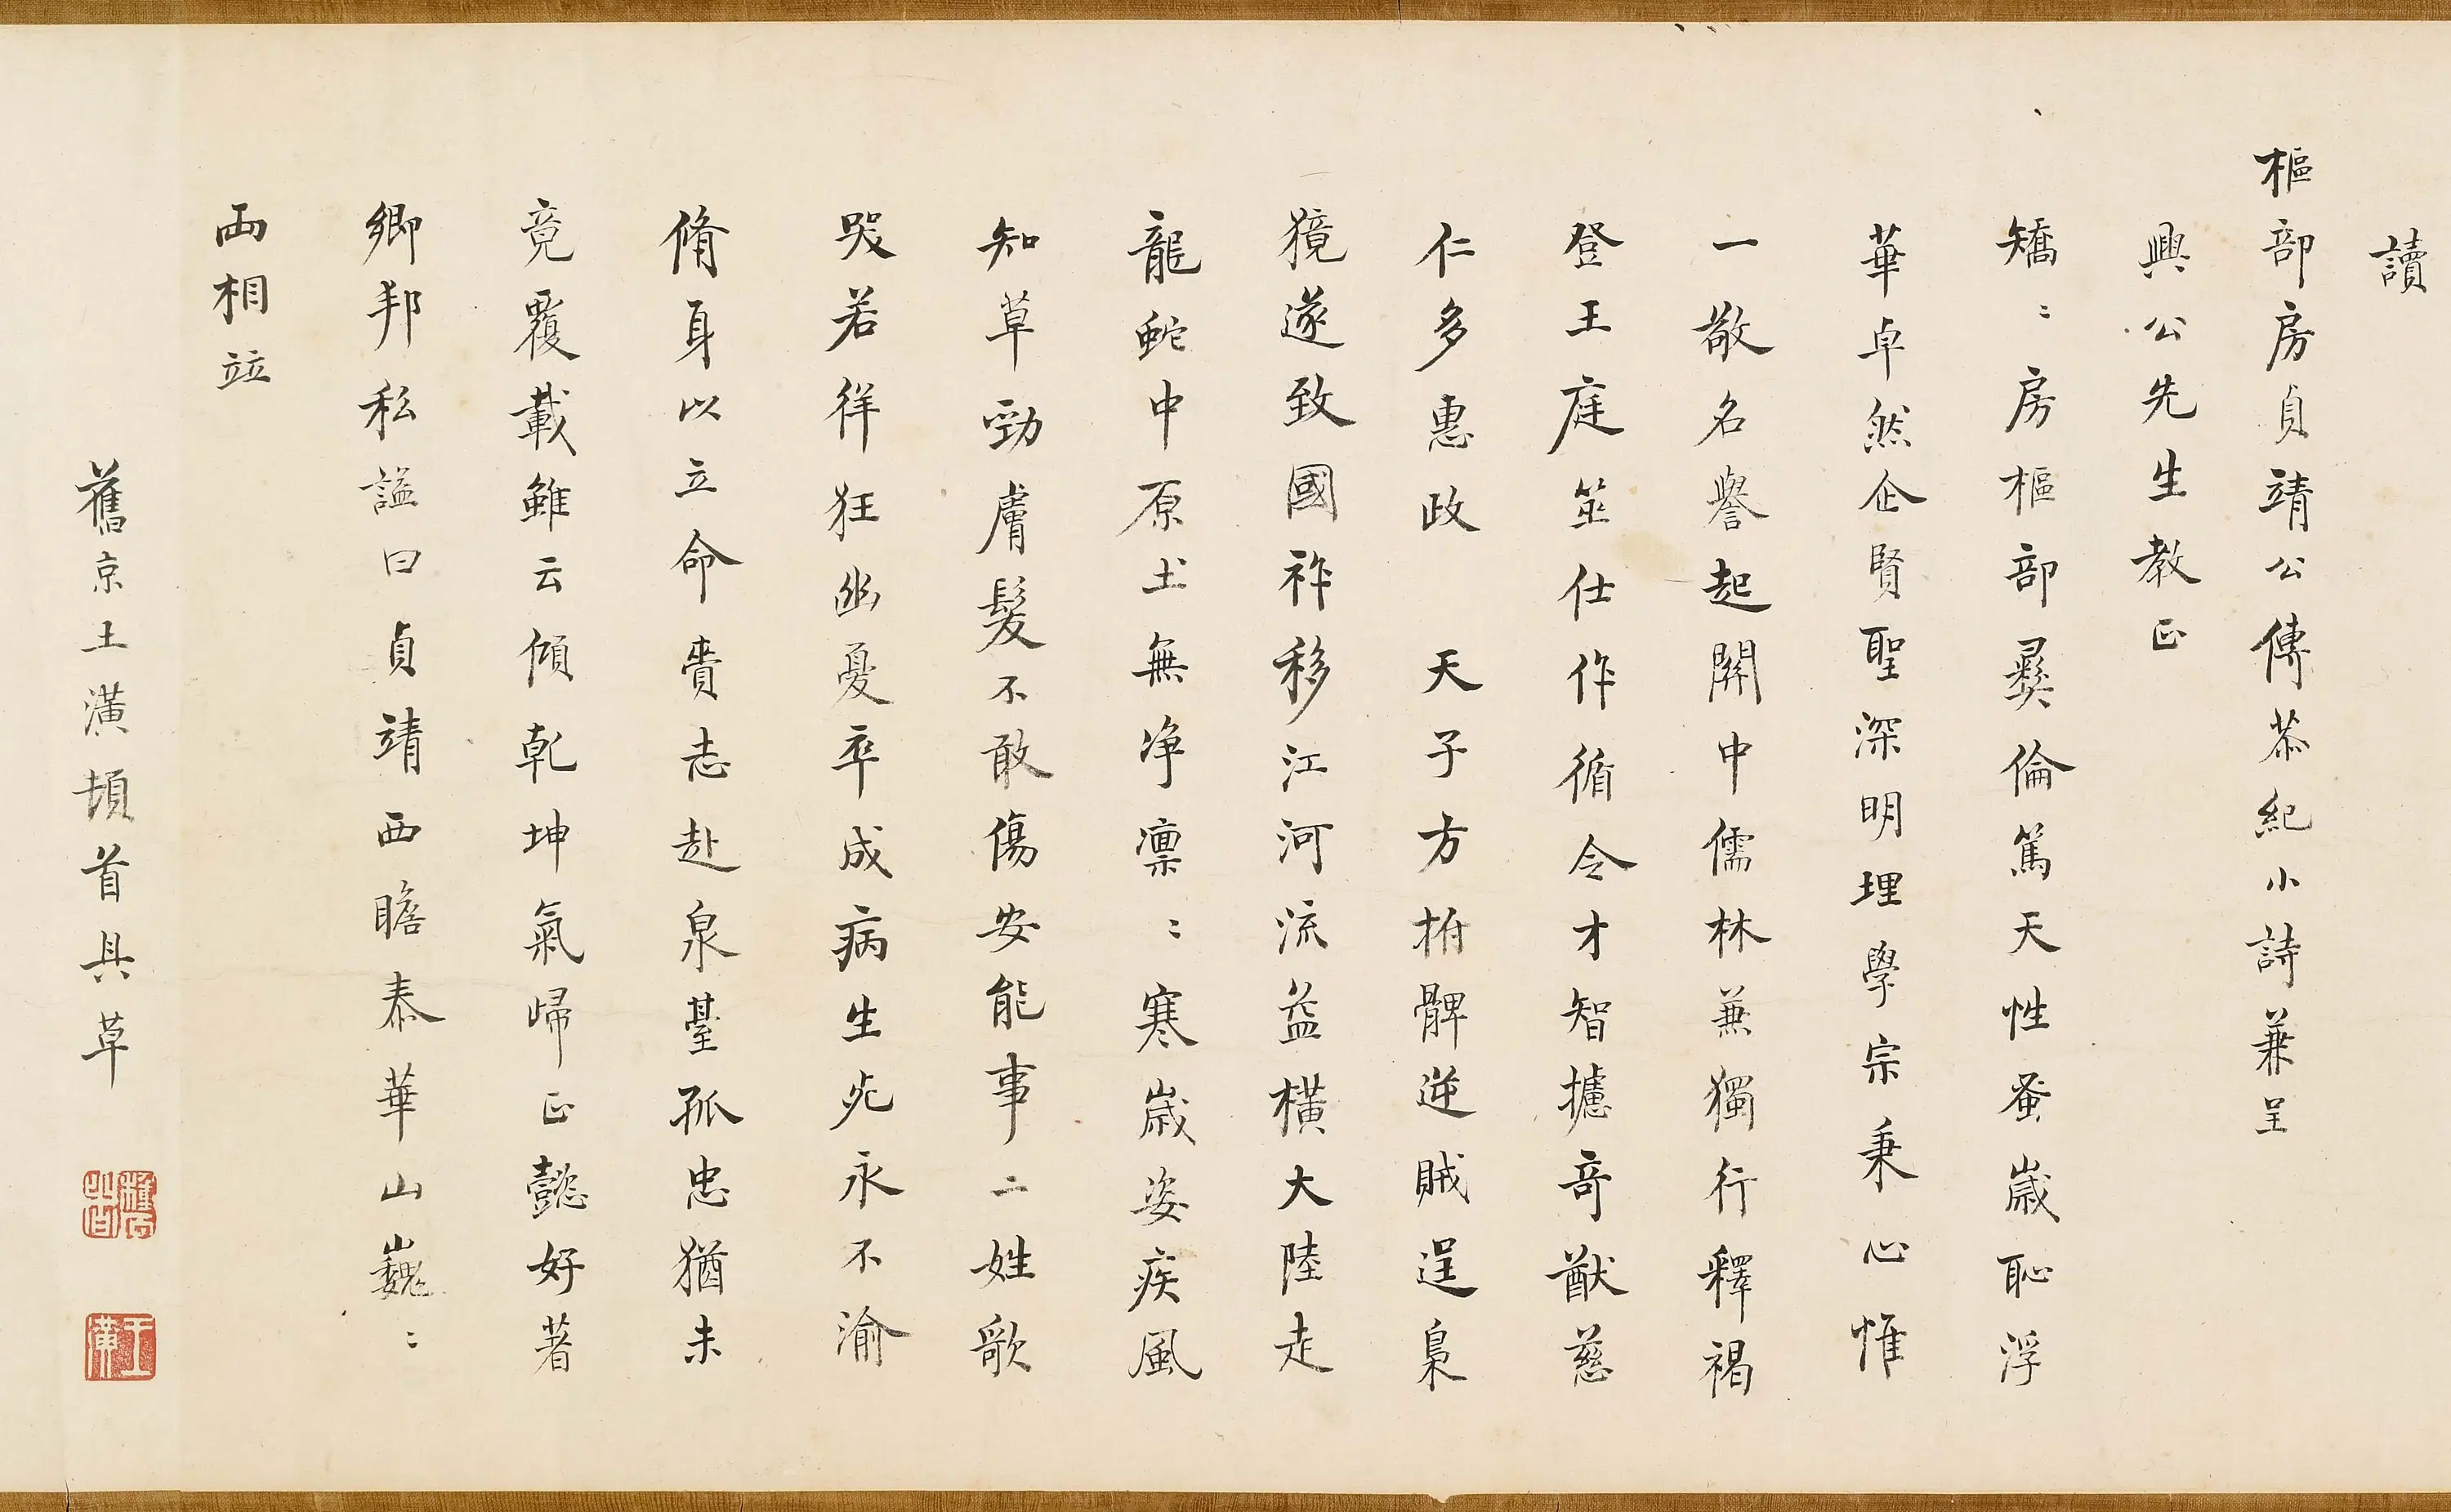 讀
樞部房貞靖公傳恭紀小詩兼呈
興公先生教正
矯〻房樞部彝倫篤天性蚤歲恥浮
華卓然企賢聖深明理學宗秉心惟
一敬名譽起關中儒林兼獨行釋褐
登王庭筮仕作循令才智攄奇猷慈
仁多惠政 天子方拊髀逆賊逞梟
獍遂致國祚移江河流益橫大陸走
龍蛇中原土無净凛〻寒歲姿疾風
知草勁膚髮不敢傷安能事二姓歌
哭若佯狂幽憂卒成病生死永不渝
脩身以立命賫志赴泉臺孤忠猶未
竟覆載雖云傾乾坤氣歸正懿好著
鄉邦私謚曰貞靖西瞻泰華山巍〻
兩相竝
舊京王潢頓首具草
王潢